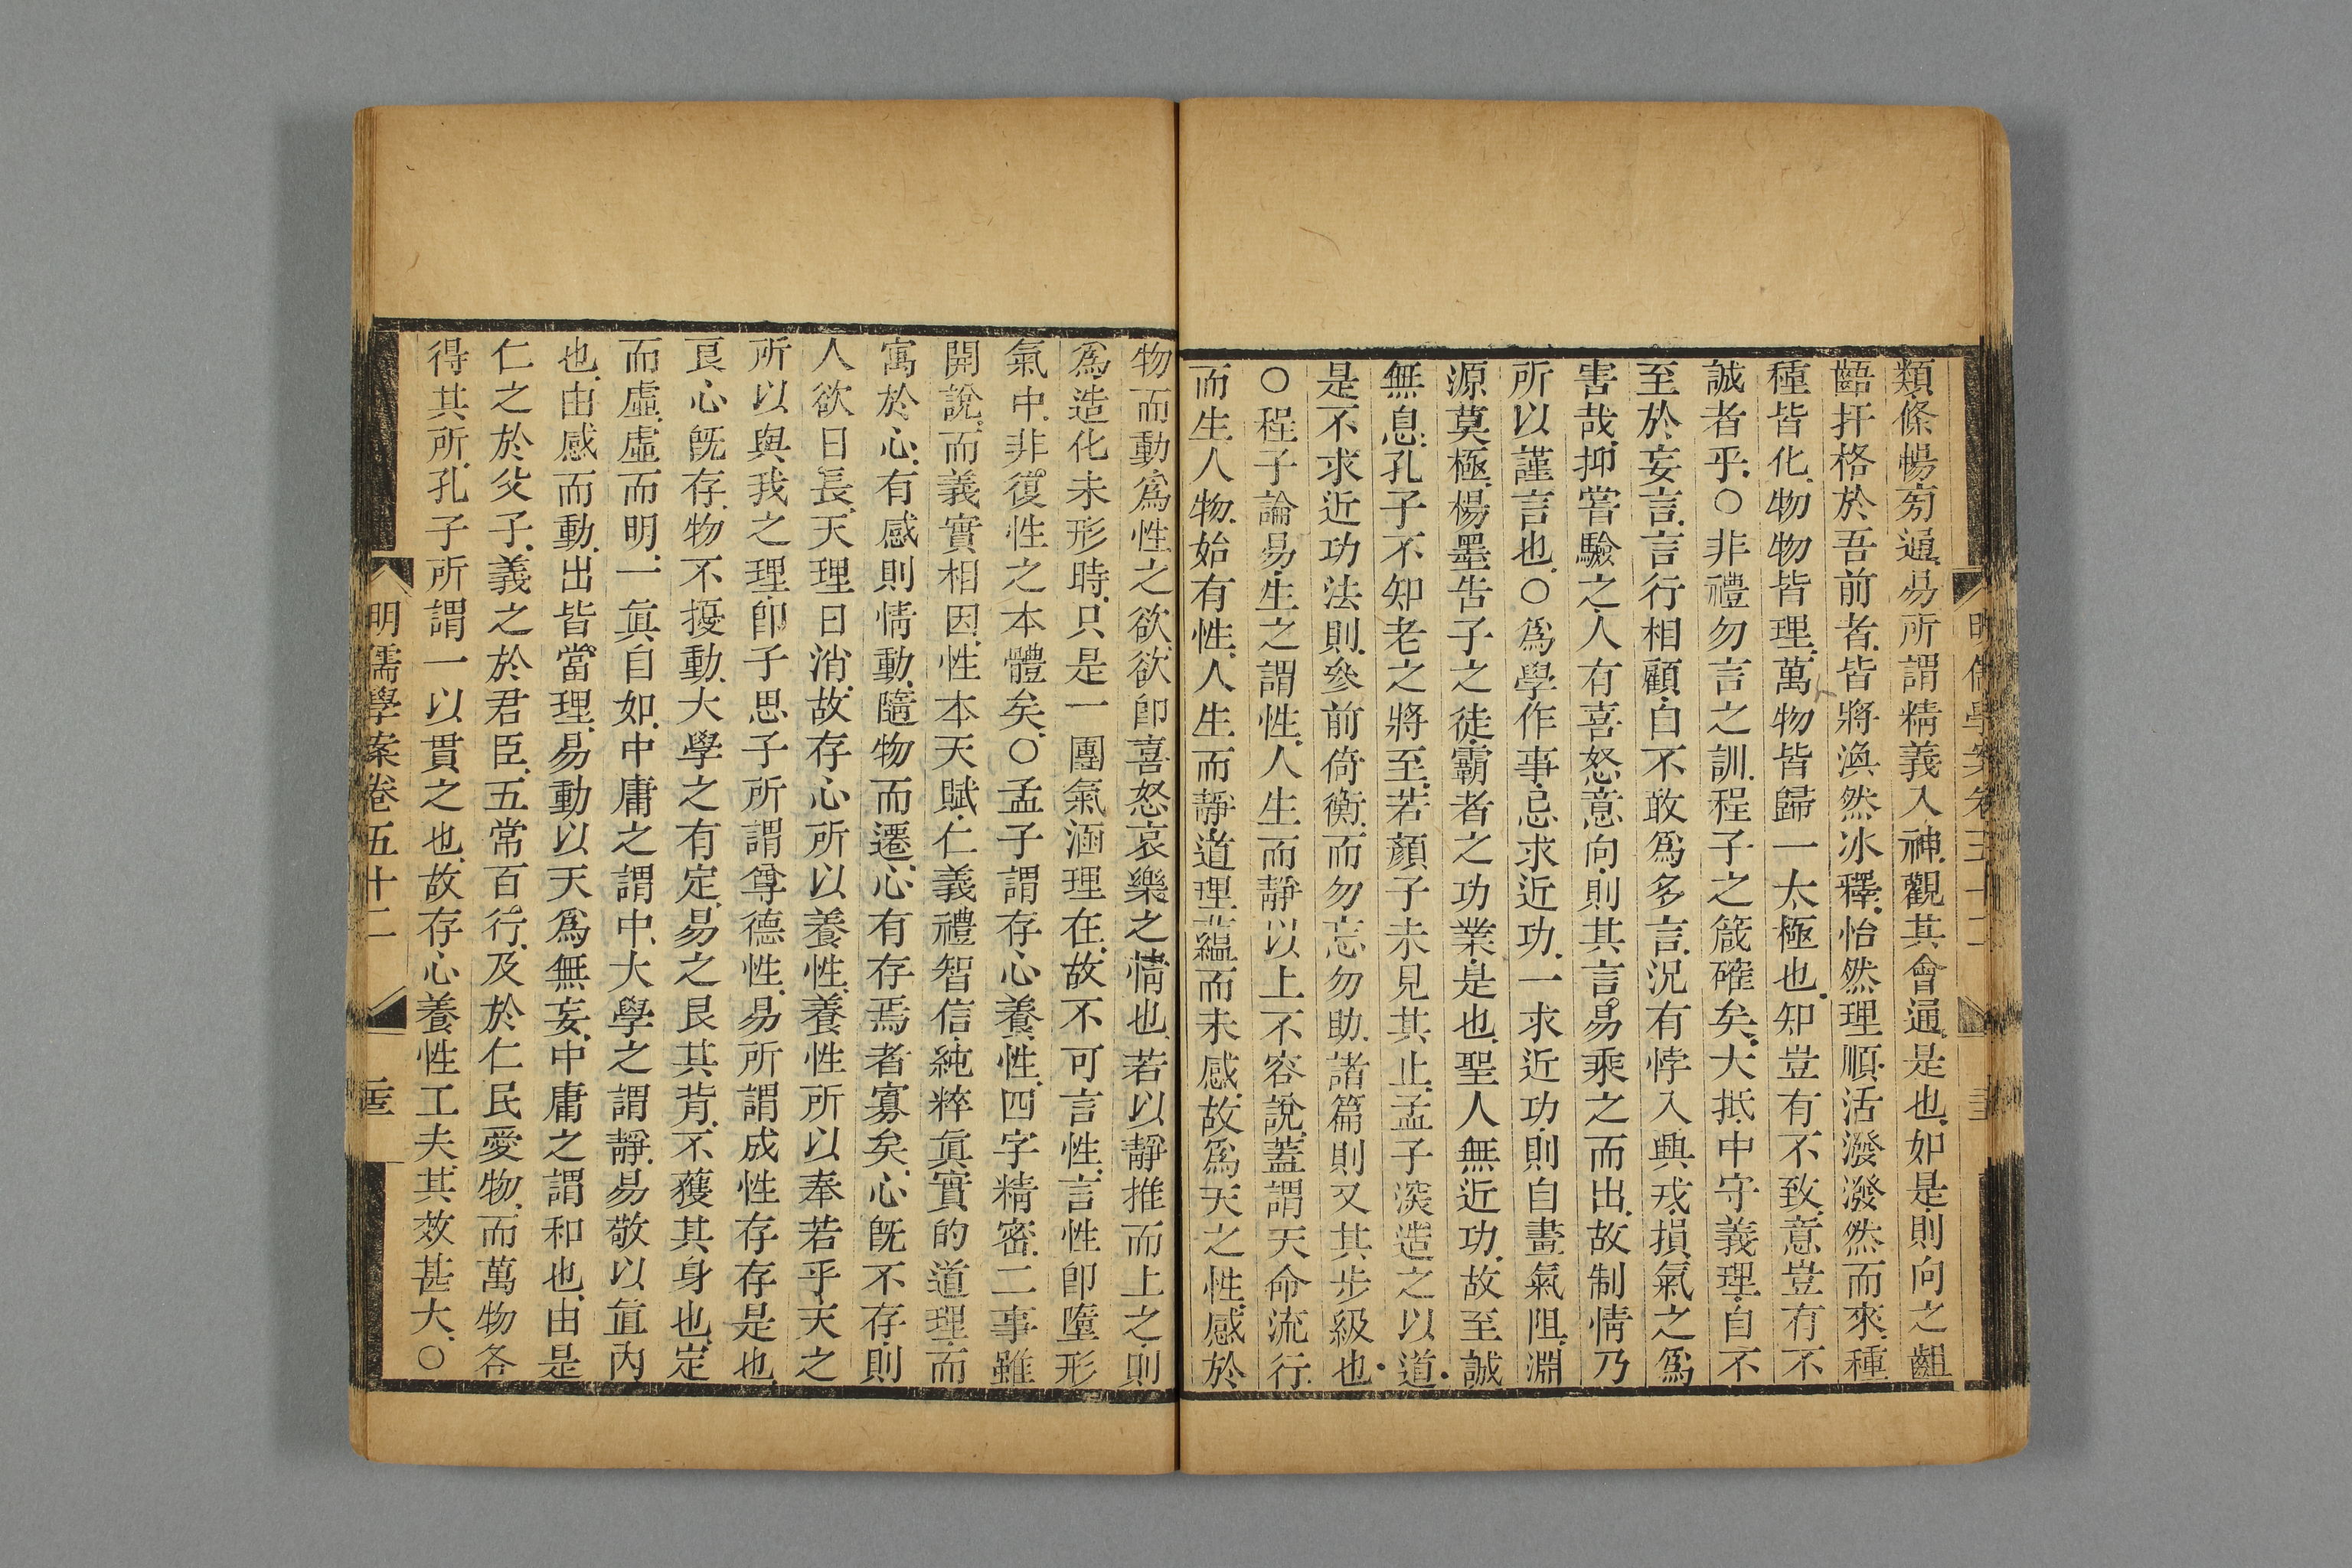 類條暢旁通易所謂精義入神觀其會通是也如是則向之齟
齬扞格於吾前者皆將渙然冰釋怡然理順活潑潑然而來種
種皆化物物皆理萬物皆歸一太極也知豈有不致意豈有不
誠者乎○非禮勿言之訓程子之箴確矣大抵中守義理自不
至於妄言言行相顧自不敢爲多言況有悖入興戎損氣之爲
害哉抑嘗驗之人有喜怒意向則其言易乘之而出故制情乃
所以謹言也○爲學作事忌求近功一求近功則自畫氣阻淵
源莫極楊墨告子之徒霸者之功業是也聖人無近功故至誠
無息孔子不知老之將至若顏子未見其止孟子深造之以道
是不求近功法則參前倚衡而勿忘勿助諸篇則又其步級也
○程子論易生之謂性人生而靜以上不容說蓋謂天命流行
而生人物始有性人生而靜道理蘊而未感故爲天之性感於
物而動爲性之欲欲卽喜怒哀樂之情也若以靜推而上之則
爲造化未形時只是一團氣涵理在故不可言性言性卽墮形
氣中非復性之本體矣○孟子謂存心養性四字精密二事雖
開說而義實相因性本天賦仁義禮智信純粹眞實的道理而
寓於心有感則情動隨物而遷心有存焉者寡矣心旣不存則
人欲日長天理日消故存心所以養性養性所以奉若乎天之
所以與我之理卽子思子所謂尊德性易所謂成性存存是也
良心旣存物不擾動大學之有定易之艮其背不獲其身也定
而虛虛而明一眞自如中庸之謂中大學之謂靜易敬以直內
也由感而動出皆當理易動以天爲無妄中庸之謂和也由是
仁之於父子義之於君臣五常百行及於仁民愛物而萬物各
得其所孔子所謂一以貫之也故存心養性工夫其效甚大○
明儒學案卷五十二